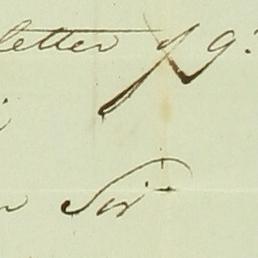 letter of 9:
Sir